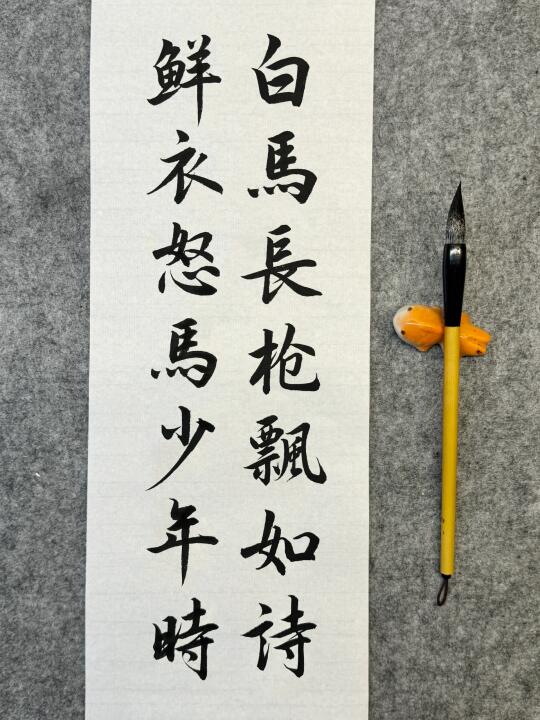 白馬長枪飄如詩
鮮衣怒馬少年時